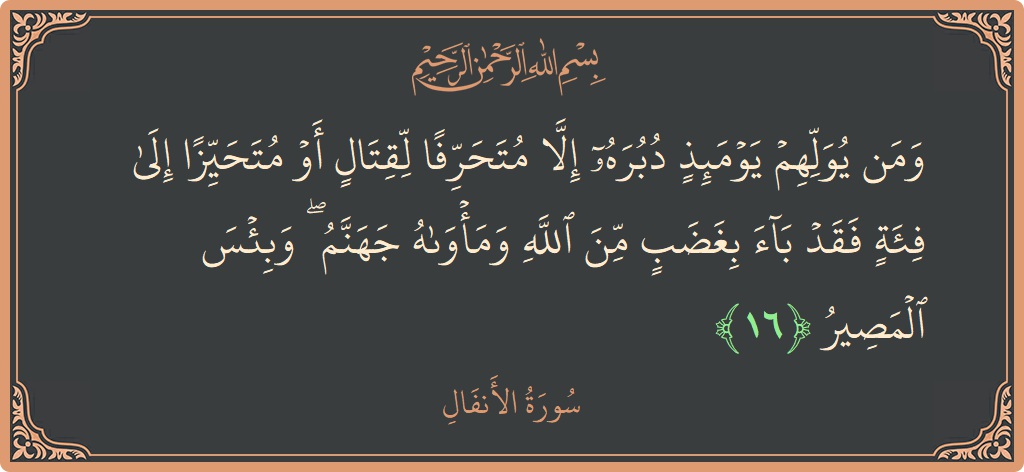 بِسْمِ اللَّهِ الرَّحْمَٰنِ الرَّحِيمِ
وَمَن يُوَلِّهِمْ يَوْمَئِذٍ دُبُرَهُۥٓ إِلَّا مُتَحَرِّفًا لِّقِتَالٍ أَوْ مُتَحَيِّزًا إِلَىٰ
فِئَةٍ فَقَدْ بَآءَ بِغَضَبٍ مِّنَ ٱللَّهِ وَمَأْوَىٰهُ جَهَنَّمُ ۖ وَبِئْسَ
ٱلْمَصِيرُ ﴿١٦﴾
سُورَةُ الأَنفَالِ